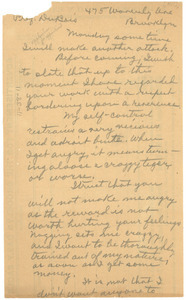 Prof. DuBois
475 Waverly Ave
Brooklyn
Monday some time
I will make another attack.
Before coming, I wish
to state that up to this
moment I have regarded
your work with a respect
bordering upon a reverence.
My self-control
restrains a very vicious
and adroit brute. When
I get angry, it means turn-
ing aloose a crazy tiger
or worse.
I trust that you
will not make me angry
as the reward is not
worth hurting your feelings
Nagging sets me crazy,
and I want to be thoroughly
trained out of any nature,
as soon as I get some
money.
It is not that I
don't want anyone to